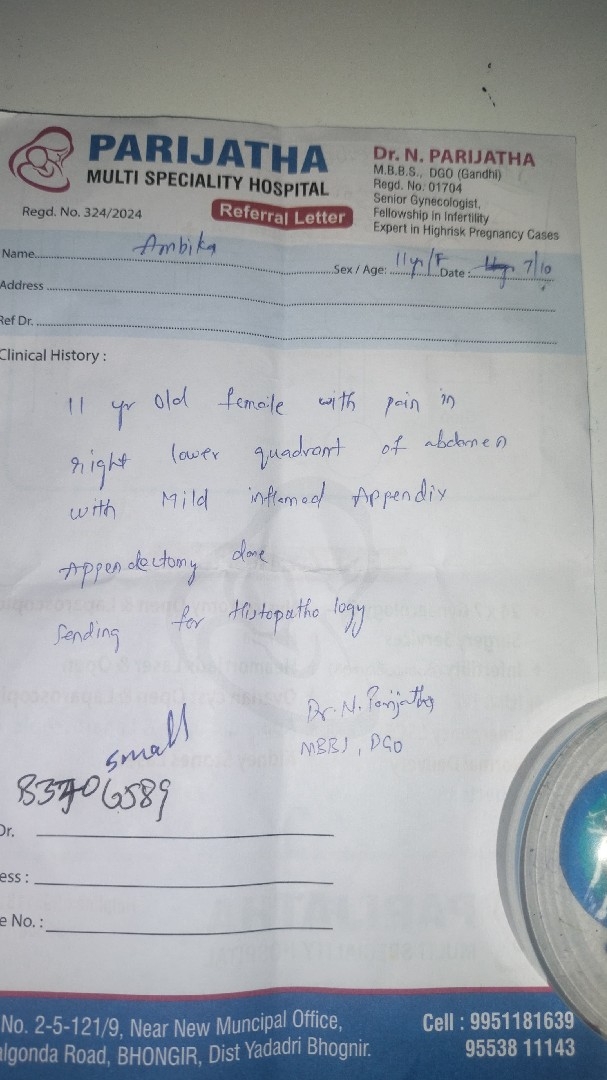 PARIJATHA
MULTI SPECIALITY HOSPITAL
Regd. No. 324/2024
Referral Letter
Dr. N. PARIJATHA
M.B.B.S., DGO (Gandhi)
Regd. No. 01704
Senior Gynecologist,
Fellowship in Infertility
Expert in Highrisk Pregnancy Cases
Name Ambika
Sex / Age: 11yr/F Date : 7/10
Address
Ref Dr.
Clinical History :
11 yr old female with pain in
right lower quadrant of abdomen
with Mild inflamed Appendix
Appendectomy done
Sending for Histopathology
Dr. N. Parijatha
MBBS, DGO
small
83706589
Dr.
ess :
e No. :
No. 2-5-121/9, Near New Muncipal Office,
algonda Road, BHONGIR, Dist Yadadri Bhognir.
Cell : 9951181639
95538 11143